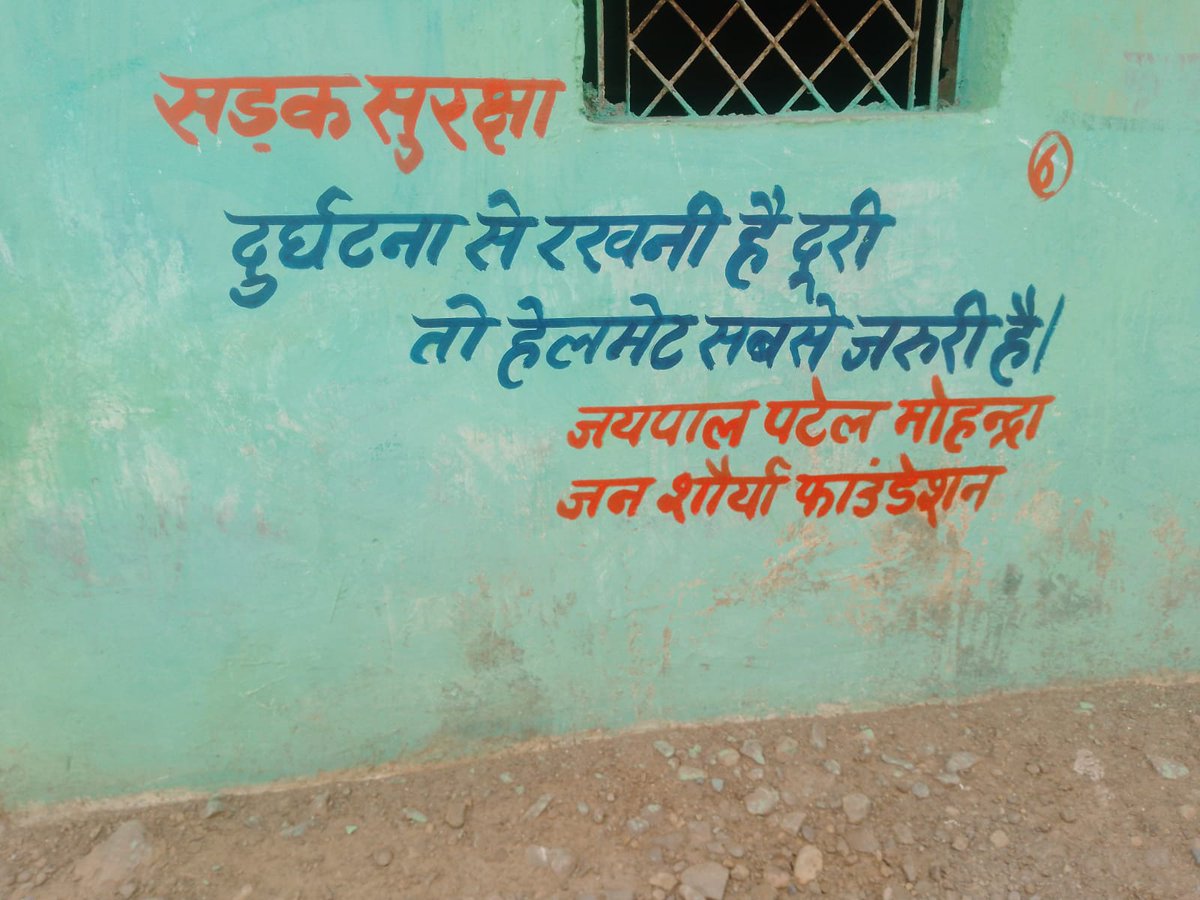 सड़क सुरक्षा
दुर्घटना से रखनी है दूरी
तो हेलमेट सबसे जरुरी है।
जयपाल पटेल मोहन्द्रा
जन शौर्या फाउंडेशन